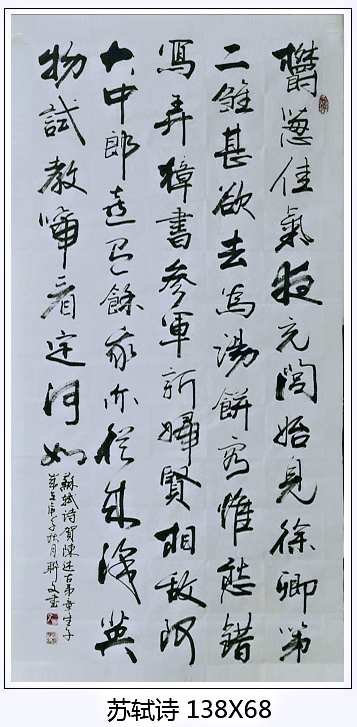 欝葱佳氣夜充閭始見徐卿第
二雛甚欲去為湯餅客惟愁錯
寫弄獐書參軍新婦賢相敵阿
大中郎喜有餘我亦從来識英
物試教啼看定何如
蘇軾诗賀陳述古弟章生子
歲在庚子秋月文書
苏轼诗 138X68